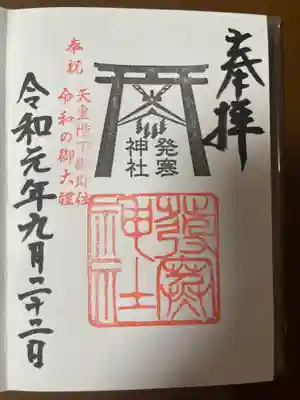 奉拝
発寒
神社
發寒
神社
之印
奉祝 天皇陛下御即位
令和の御大禮
令和元年九月二十二日